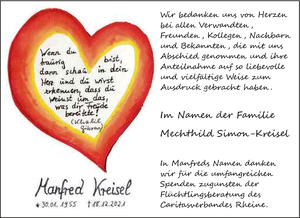 Wenn du
traurig bist,
dann schau in dein
Herz und du wirst
erkennen, dass du
weinst um das,
was dir Freude
bereitete!
(Khalil
Gibran)
Manfred Kreisel
*30.01.1955 †15.12.2021
Wir bedanken uns von Herzen
bei allen Verwandten,
Freunden, Kollegen, Nachbarn
und Bekannten, die mit uns
Abschied genommen und ihre
Anteilnahme auf so liebevolle
und vielfältige Weise zum
Ausdruck gebracht haben.
Im Namen der Familie
Mechthild Simon-Kreisel
In Manfreds Namen danken
wir für die umfangreichen
Spenden zugunsten der
Flüchtlingsberatung des
Caritasverbandes Rheine.